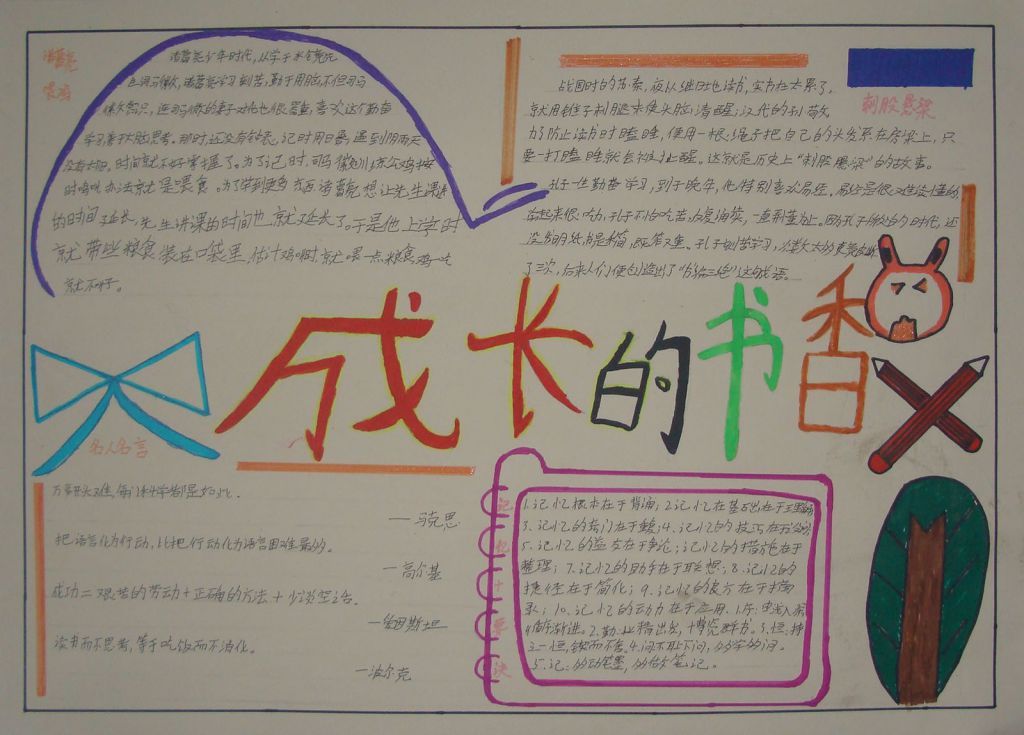 诸葛亮
喂鸡
诸葛亮少年时代，从学于水镜先
生司马徽，诸葛亮学习刻苦，勤于用脑，不但司马
徽赏识，连司马徽的妻子对他也很器重，喜欢这个勤奋
学习，善于用脑思考。那时，还没有钟表，记时用日晷，遇到阴雨天
没有太阳。时间就不好掌握了。为了记时，司马徽训练公鸡按
时鸣叫，办法就是喂食。为了学到更多东西，诸葛亮想让先生讲课
的时间延长，先生讲课的时间也就延长了。于是他上学时
就带些粮食装在口袋里，估计鸡叫时，就喂一点粮食，鸡一吃
就不叫了。
刺股悬梁
战国时的苏秦，夜以继日地读书，实在太累了，
就用锥子刺腿来使头脑清醒；汉代的孙敬
为了防止读书时瞌睡，便用一根绳子把自己的头发系在房梁上，只
要一打瞌睡就会被扯醒。这就是历史上“刺股悬梁”的故事。
孔子一生勤奋学习，到了晚年，他特别喜欢易经，易经是很难读懂的，
了三次，后来人们便创造出了“韦编三绝”这句成语。
成长的书香
名人名言
万事开头难，每门科学都是如此。
——马克思
把语言化为行动，比把行动化为语言困难最的。
——高尔基
成功＝艰苦的劳动＋正确的方法＋少谈空话。
——爱因斯坦
读书而不思考，等于吃饭而不消化。
——波尔克
记忆十要诀
1.记忆根本在于背诵；2.记忆在基础在于理解；
5.记忆的益友在于争论；记忆的措施在于
整理；7.记忆的助手在于联想；8.记忆的
捷径在于简化；9.记忆的良方在于
10.记忆的动力在于应用。1.序：由浅入深，
循序渐进。2.勤：业精出勤，博览群书。3.恒：持
之一恒，锲而不舍。4.问：不耻下问，
5.记：勤动笔墨，勤做笔记。